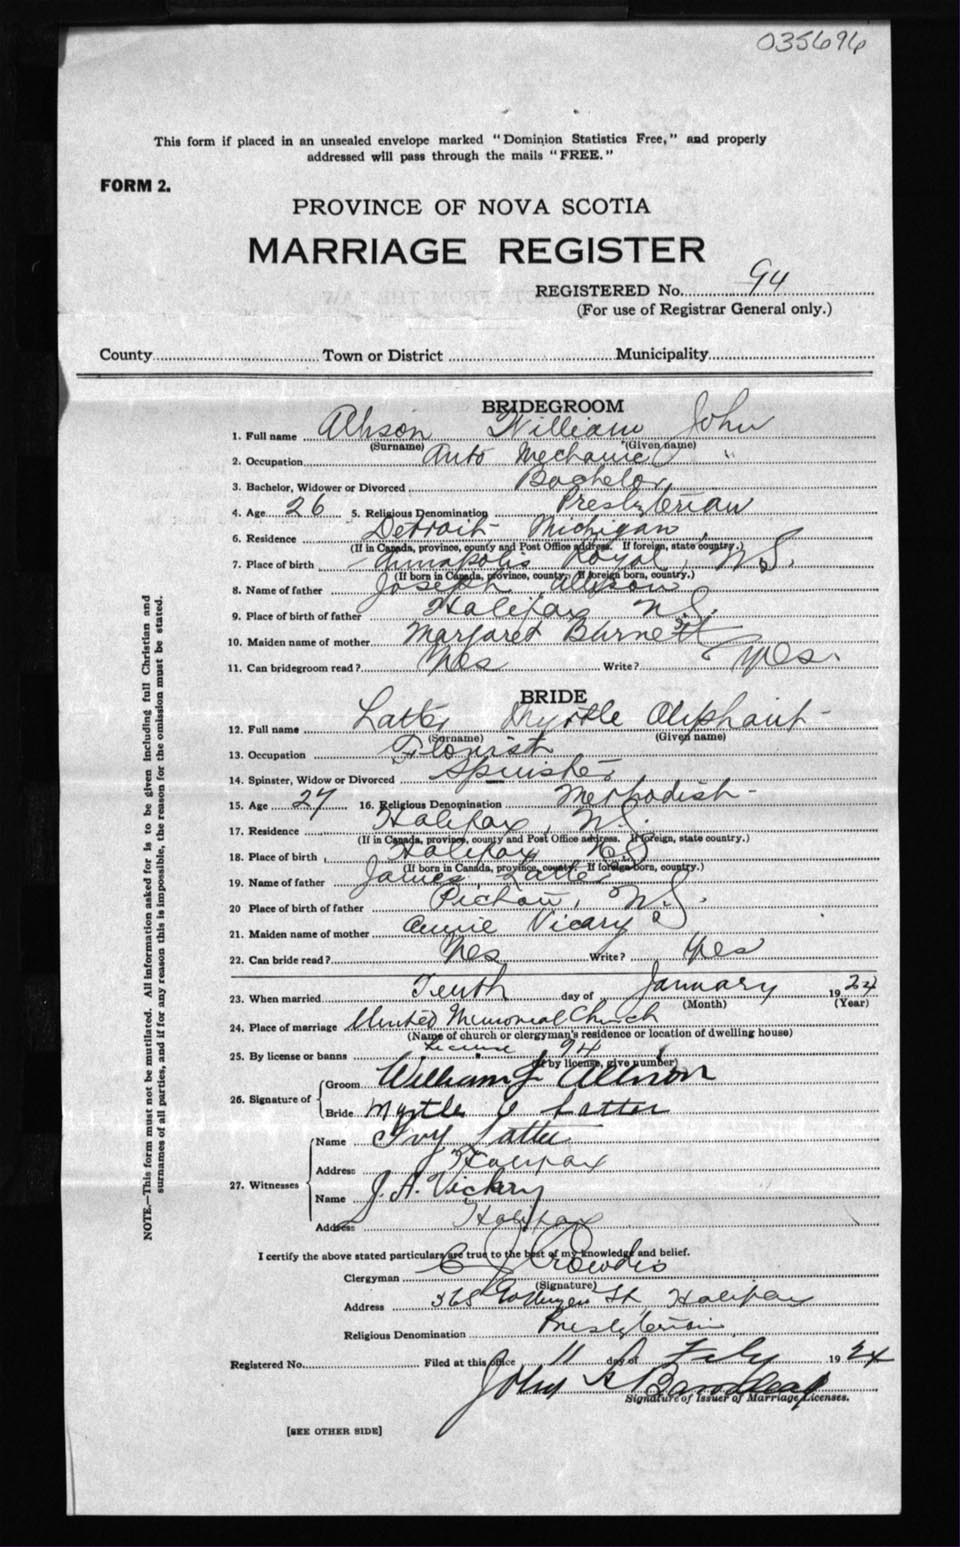 035696
This form if placed in an unsealed envelope marked "Dominion Statistics Free," and properly
addressed will pass through the mails "FREE."
FORM 2.
PROVINCE OF NOVA SCOTIA
MARRIAGE REGISTER
REGISTERED No. 94
(For use of Registrar General only.)
County Town or District Municipality
BRIDEGROOM
1. Full name Allison William John
(Surname) (Given name)
2. Occupation Auto Mechanic
3. Bachelor, Widower or Divorced Bachelor
4. Age 26 5. Religious Denomination Presbyterian
6. Residence Detroit Michigan
(If in Canada, province, county and Post Office address. If foreign, state country.)
7. Place of birth Annapolis Royal, N.S.
(If born in Canada, province, county. If foreign born, country.)
8. Name of father Joseph Allison
9. Place of birth of father Halifax N.S.
10. Maiden name of mother Margaret Burnett
11. Can bridegroom read? Yes Write? Yes.
BRIDE
12. Full name Latter Myrtle Oliphant
(Surname) (Given name)
13. Occupation Florist
14. Spinster, Widow or Divorced Spinster
15. Age 27 16. Religious Denomination Methodist
17. Residence Halifax, N.S.
(If in Canada, province, county and Post Office address. If foreign, state country.)
18. Place of birth Halifax N.S.
(If born in Canada, province, county. If foreign born, country.)
19. Name of father James Latter
20 Place of birth of father N.S.
21. Maiden name of mother Annie Vicary
22. Can bride read? Yes Write? Yes
23. When married Tenth day of January 1924
(Month) (Year)
24. Place of marriage United Memorial Church
(Name of church or clergyman's residence or location of dwelling house)
25. By license or banns License 94
(If by license, give number)
26. Signature of
Groom William J Allison
Bride Myrtle O Latter
27. Witnesses
Name Ivy Latter
Address Halifax
Name J. A. Vickery
Address Halifax
I certify the above stated particulars are true to the best of my knowledge and belief.
Clergyman C J Crowdis
(Signature)
Address 368 Gottingen St, Halifax
Religious Denomination Presbyterian
Registered No. Filed at this office 11 day of 1924
John
Signature of Issuer of Marriage Licenses.
[SEE OTHER SIDE]
NOTE.—This form must not be mutilated. All information asked for is to be given including full Christian and
surnames of all parties, and if for any reason this is impossible, the reason for the omission must be stated.